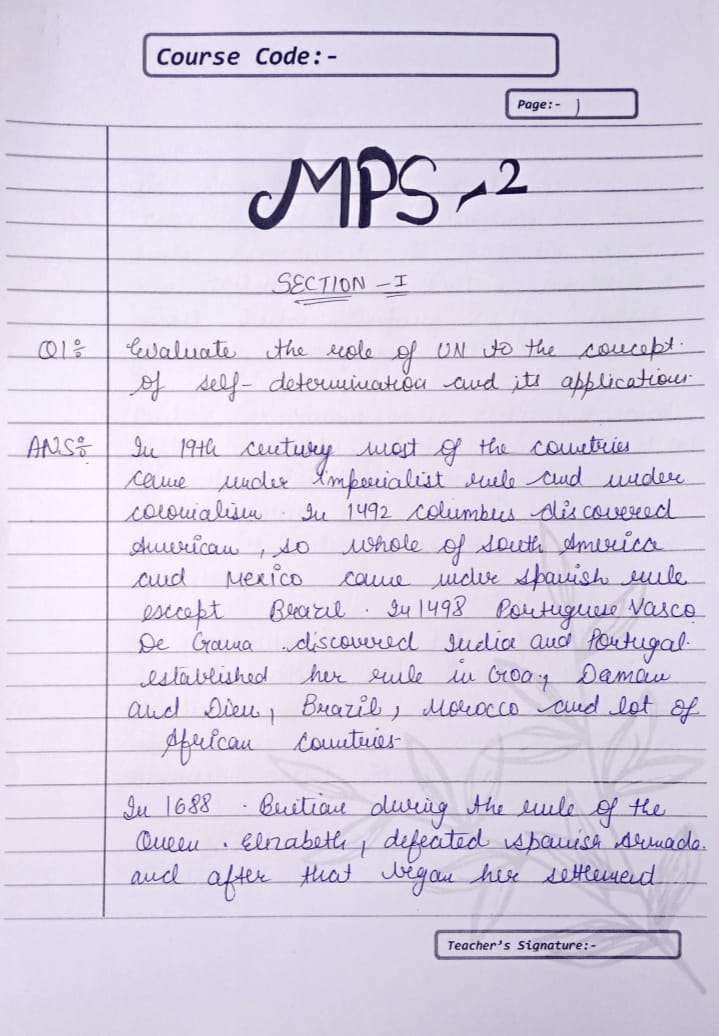 Course Code:-
Page:- 1
MPS-2
SECTION - I
Q1: Evaluate the role of UN to the concept
of self-determination and its application.
ANS: In 19th century most of the countries
came under imperialist rule and under
colonialism. In 1492 Columbus discovered
American, so whole of South America
and Mexico came under Spanish rule
except Brazil. In 1498 Portuguese Vasco
De Gama discovered India and Portugal
established her rule in Goa, Daman
and Dieu, Brazil, Morocco and lot of
African Countries.
In 1688 . Britian during the rule of the
Queen . Elizabeth, defeated spanish Armada.
and after that began her settlement
Teacher's Signature:-